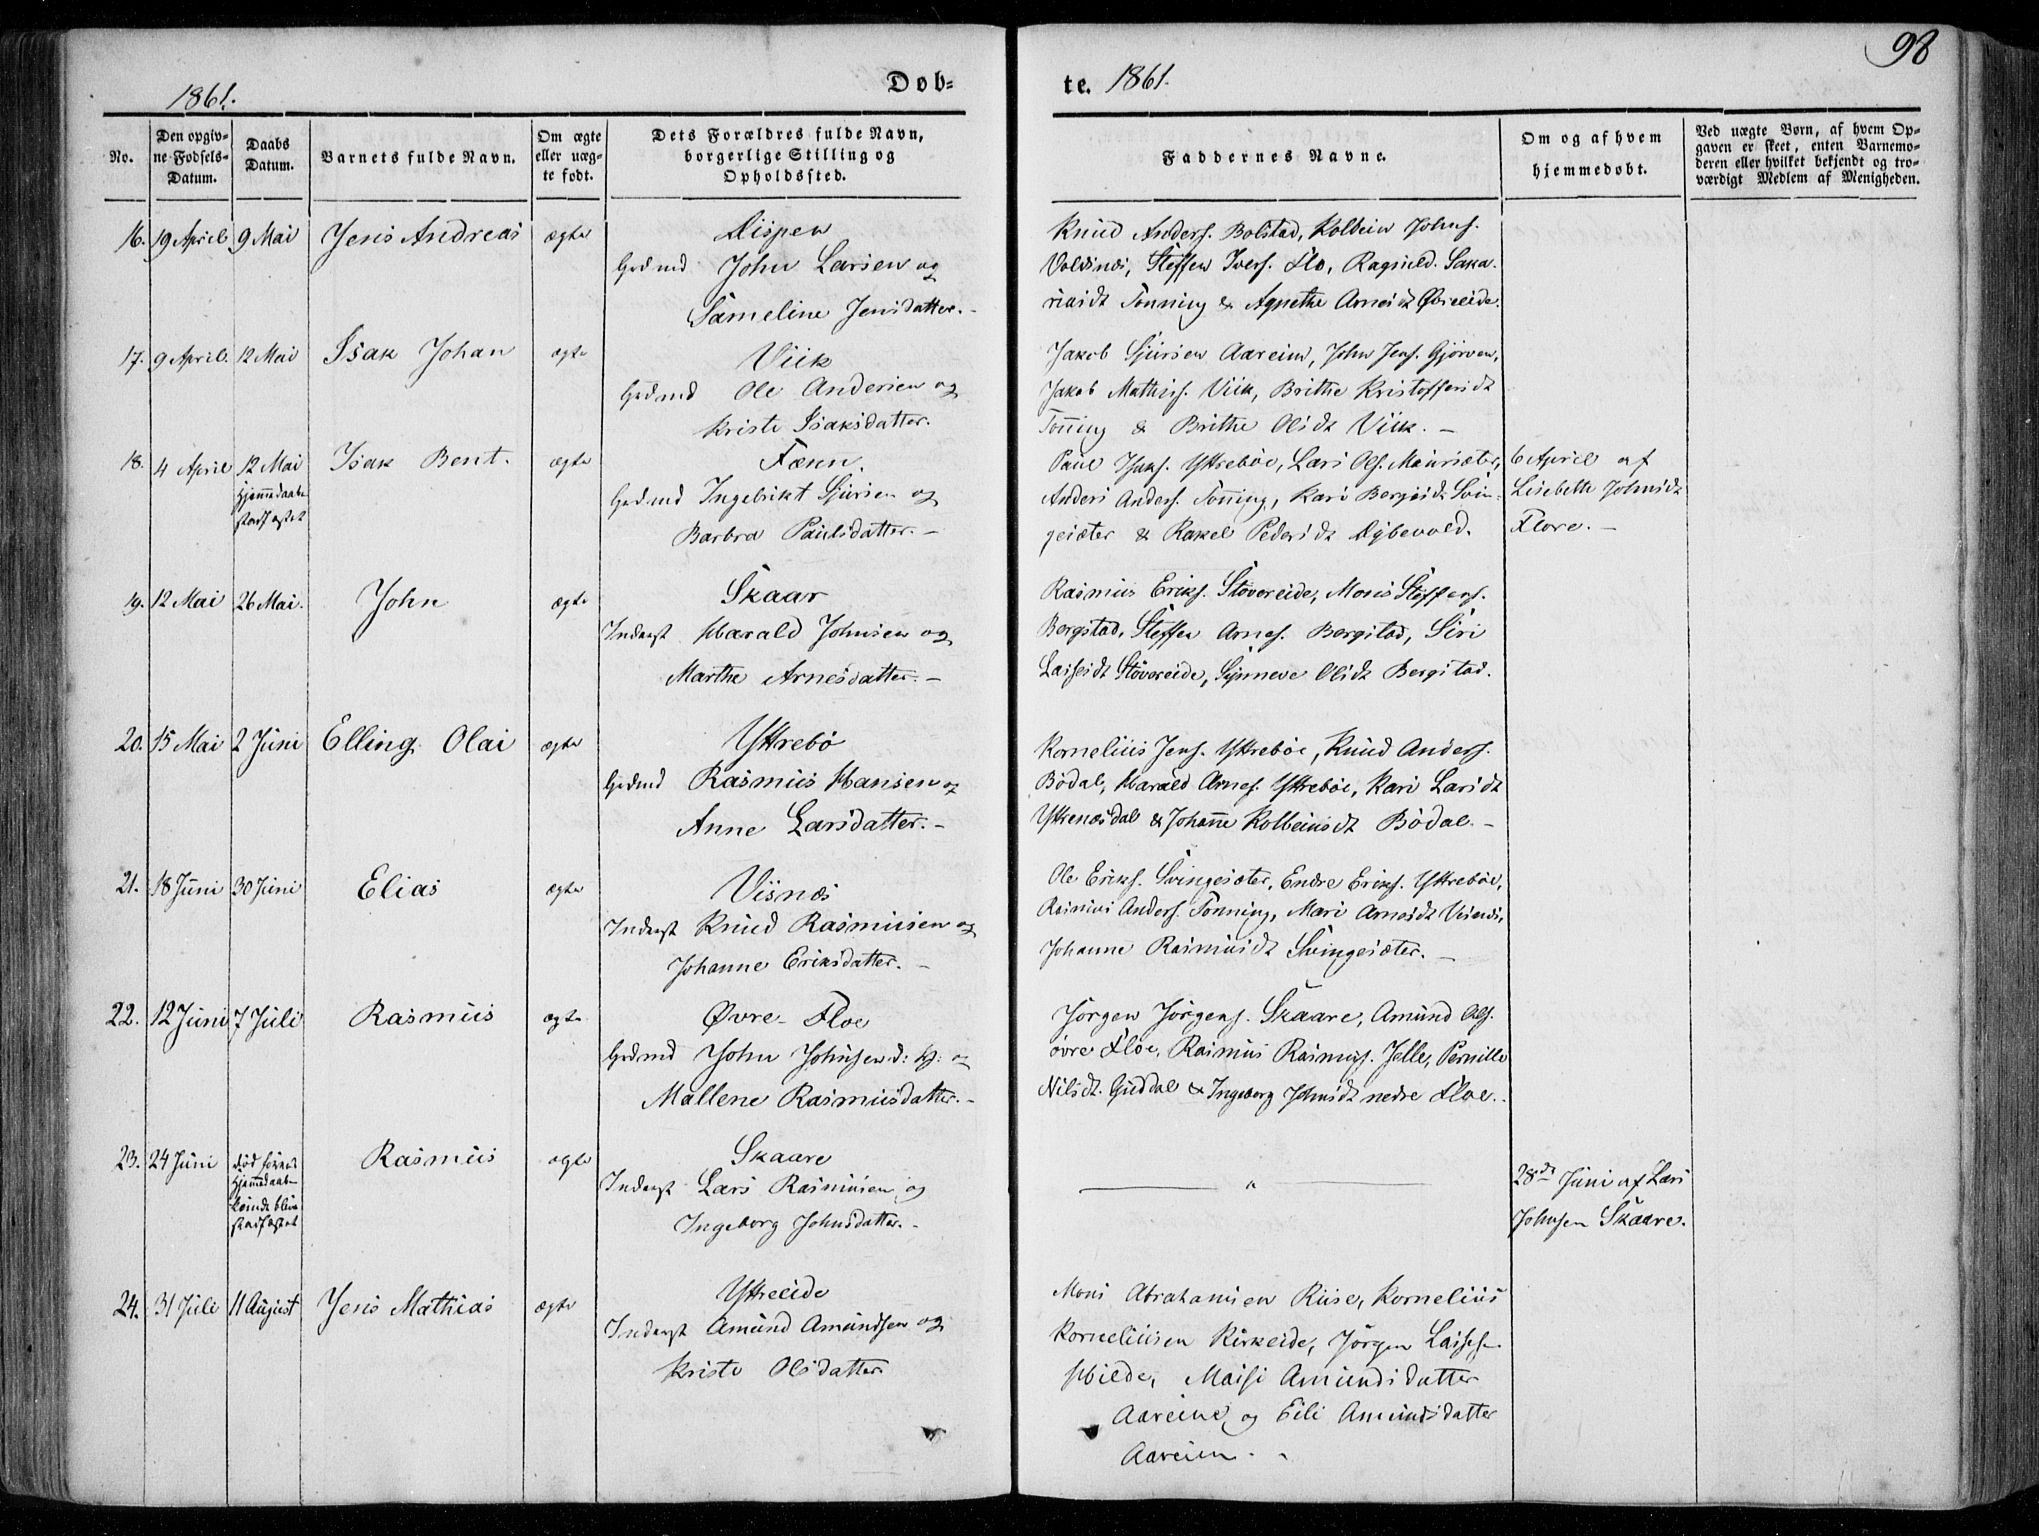 98
1861.
Døb-
te. 1861.
No.
Den opgiv-
ne Fødsels-
Datum.
Daabs
Datum.
Barnets fulde Navn.
Om ægte
eller uæg-
te født.
Dets Forældres fulde Navn,
borgerlige Stilling og
Opholdssted.
Faddernes Navne.
Om og af hvem
hjemmedøbt.
Ved uægte Børn, af hvem Op-
gaven er skeet, enten Barnemo-
deren eller hvilket bekjendt og tro-
værdigt Medlem af Menigheden.
16. 19 April 9 Mai Jens Andreas ægte
Dispen
Grdmd John Larsen og
Sameline Jensdatter.-
Knud Anders. Bolstad, Kolbein Johns.
Voldsnæs, Steffen Ivers. Flo, Ragnild Saka-
riasdt Tonning & Agnethe Arnesdt Øvreeide.
17. 9 April. 12 Mai Isak Johan ægte
Viik
Grdmd Ole Andersen og
Kriste Isaksdatter.
Jakob Sjursen Aareim, John Jens. Gjørven,
Jakob Mathiss. Viik, Brithe Kristoffersdt
Tonning & Brithe Olsdt Viik. -
18. 4 April 12 Mai
Hjemmedaabn
stadfæstet
Isak Bent. ægte
Fænn.
Grdmd Ingebrikt Sjursen og
Barbra Paulsdatter.-
Paul Isaks. Yttrebøe, Lars Ols. Mainsæter,
Anders Anders. Tonning, Kari Bergesdt Svin-
gesæter & Rakel Pedersdt Dybevold.
6 April af
Lisebeth Johnsdt
Flore. -
19. 12 Mai 26 Mai. John ægte
Skaar
Inderst Harald Johnsen og
Marthe Arnesdatter. -
Rasmus Eriks. Støvereide, Mons Steffens.
Bergstad, Steffen Arnes. Bergstad, Siri
Lassesdt Støvereide, Synneve Olsdt Bergstad.
20. 15 Mai 2 Juni Elling Olai ægte
Yttrebø
Grdmd Rasmus Hansen og
Anne Larsdatter.-
Kornelius Jens. Yttrebøe, Knud Anders.
Bødal, Harald Arnes. Yttrebøe, Kari Larsdt
Yttrenæsdal & Johanne Kolbeinsdt Bødal. -
21. 18 Juni 30 Juni Elias ægte
Visnæs
Inderst Knud Rasmusen og
Johanne Eriksdatter. -
Ole Eriks. Svingesæter, Endre Eriks. Yttrebøe,
Rasmus Anders. Tonning, Mari Arnesdt Visnæs,
Johanne Rasmusdt Svingesæter. -
22. 12 Juni 7 Juli Rasmus ægte
Øvre-Floe
Grdmd John Johnsen d: y: og
Mallene Rasmusdatter.-
Jørgen Jørgens. Skaare, Amund Ols.
øvre Floe, Rasmus Rasmuss. Jelle, Pernille
Nilsdt. Guddal & Ingeborg Johnsdt nedre Floe.
23. 24 Juni
død førend
Hjemmedaaben
kunde blive
stadfæstet
Rasmus ægte
Skaare
Inderst Lars Rasmusen og
Ingeborg Johnsdatter.-
"
28de Juni af Lars
Johnsen Skaare.
24. 31 Juli 11 August Jens Mathias ægte
Yttreeide
Inderst Amund Amundsen og
Kriste Olsdatter
Mons Abrahamsen Ruse, Kornelius
Korneliusen Kirkeide, Jørgen Lasses.
Hilde, Maisi Amundsdatter
Aareim og Eili Amundsdatter
Aareim.